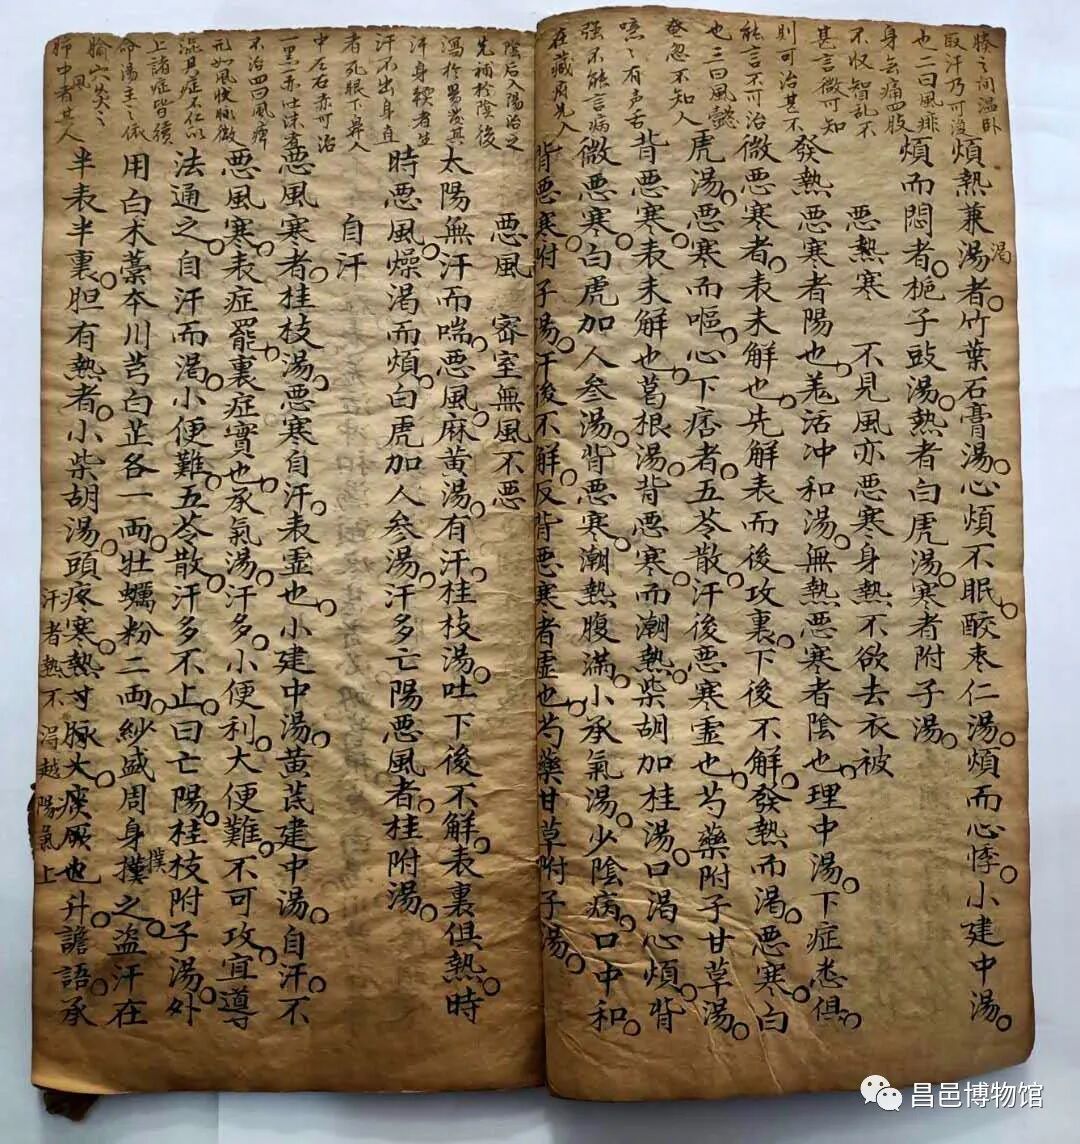 煩熱兼湯者竹葉石膏湯心煩不眠酸枣仁湯煩而心悸小建中湯
渴
煩而悶者梔子豉湯熱者白虎湯寒者附子湯
惡熱寒　不見風亦惡寒身熱不欲去衣被
發熱惡寒者陽也羗活冲和湯無熱惡寒者陰也理中湯下症悉俱
微惡寒者表未解也先解表而後攻裏下後不解發熱而渴惡寒白
虎湯惡寒而嘔心下痞者五苓散汗後惡寒虛也芍藥附子甘草湯
背惡寒表未解也葛根湯背惡寒而潮熱柴胡加桂湯口渴心煩背
微惡寒白虎加人參湯背惡寒潮熱腹滿小承氣湯少陰病口中和
背惡寒附子湯汗後不解反背惡寒者虛也芍藥甘草附子湯
惡風　密室無風不惡
太陽無汗而喘惡風麻黃湯有汗桂枝湯吐下後不解表裏俱熱時
時惡風燥渴而煩白虎加人參湯汗多亡陽惡風者桂附湯
自汗
惡風寒者桂枝湯惡寒自汗表虛也小建中湯黃茋建中湯自汗不
惡風寒表症罷裏症實也承氣湯汗多小便利大便難不可攻宜導
法通之自汗而渴小便難五苓散汗多不止曰亡陽桂枝附子湯外
用白术藁本川芎白芷各一両牡蠣粉二両紗盛周身撲之盗汗在
撲
半表半裏胆有熱者小柴胡湯頭疼寒熱寸脉大痰厥也升譫語承
汗者熱不渴越陽氣上
之间温卧
取汗乃可没
也二曰風痱
身無痛四肢
不收智乱不
甚言微可知
則可治甚不
能言不可治
也三曰風懿
奄忽不知人
噫噫有声舌
强不能言病
在藏府先入
陰后入陽治之
先補於陰後
瀉於陽發其
汗身轉者生
汗不出身直
者死眼下鼻人
中左右赤可治
一黑一赤吐沫者
不治四曰風痺
上諸症皆續
命湯主之依
昌邑博物馆